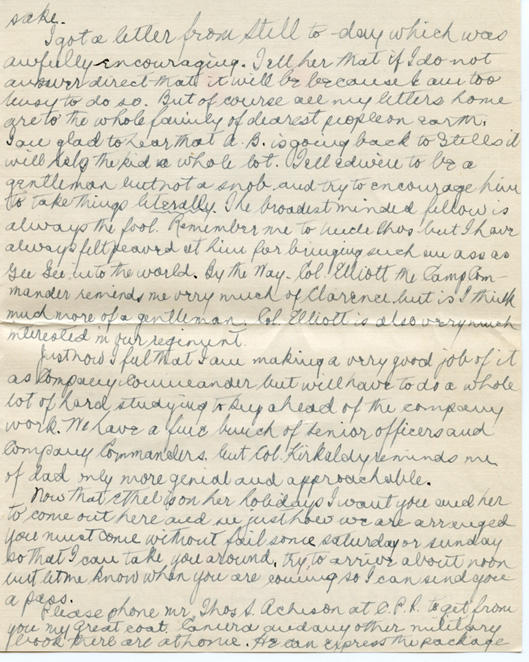 sake.
I got a letter from Still to-day which was
awfully encouraging. Tell her that if I do not
answer direct that it will be because I am too
busy to do so. But of course all my letters home
are to the whole family of dearest people on earth.
I am glad to hear that A.B. is going back to Stills it
will help the kid a whole lot. Tell Edwin to be a
gentleman but not a snob and try to encourage him
to take things literally. The broadest minded fellow is
always the fool. Remember me to Uncle Thos. but I have
always felt peaved at him for bringing such an ass as
Gee Gee into the world. By the Way. Col. Elliott the Camp Com-
mander reminds me very much of Clarence but is I think
much more of a gentleman. Col Elliott is also very much
interested in our regiment.
Just now I feel that I am making a very good job of it
as Company Commander but will have to do a whole
lot of hard studying to keep ahead of the company
work. We have a fine bunch of senior officers and
Company Commanders. but Col. Kirkaldy reminds me
of dad only more genial and approachable.
Now that Ethel is on her holidays I want you and her
to come out here and see just how we are arranged
you must come without fail some saturday or sunday
so that I can take you around, try to arrive about noon
but let me know when you are coming so I can send you
a pass.
Please phone Mr. Thos S. Acheson at C.P.R. to get from
you my great coat. Camera and any other military
book there are at home. He can express the package